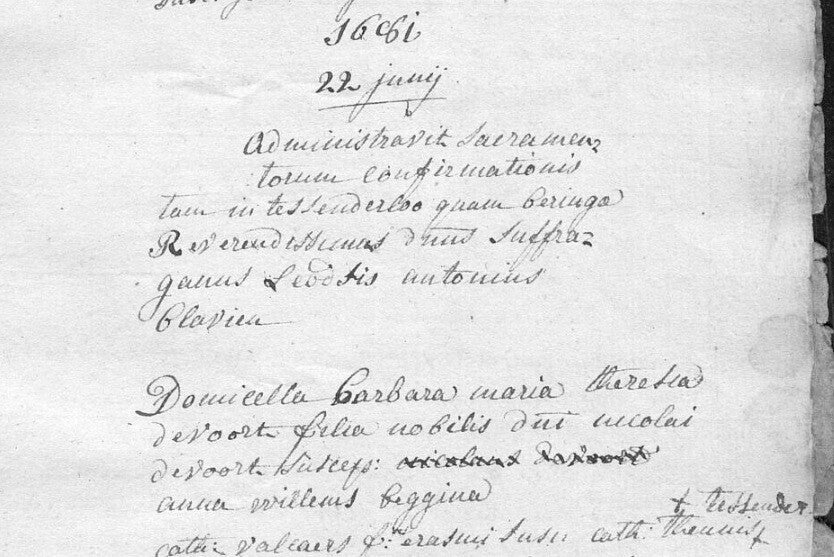 1661
22 junij
Administravit sacramen=
torum confirmationis
tam in tessenderloo quam beringæ
Reverendissimus dnus suffra=
ganus Leodsis antonius
blavier
Domicella barbara maria theresia
devoort filia nobilis dni nicolai
devoort suscep: nicolaus devoort
anna willems beggina
+ tessender
cath: valcaers f. erasmi susc cath: theunis